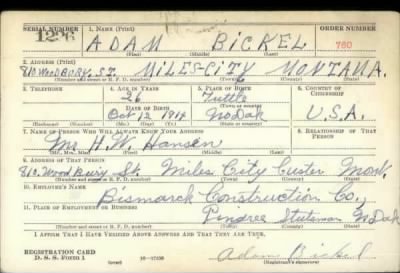 SERIAL NUMBER 1. NAME (Print) ORDER NUMBER
1296 ADAM BICKEL 760
(First) (Middle) (Last)
2. ADDRESS (Print)
810 WOODBURY. ST. MILES-CITY MONTANA.
(Number and street or R. F. D. number) (Town) (County) (State)
3. TELEPHONE 4. AGE IN YEARS 5. PLACE OF BIRTH 6. COUNTRY OF CITIZENSHIP
26 Tuttle
DATE OF BIRTH (Town or county)
Oct 12 1914 No Dak U.S.A.
(Exchange) (Number) (Mo.) (Day) (Yr.) (State or country)
7. NAME OF PERSON WHO WILL ALWAYS KNOW YOUR ADDRESS 8. RELATIONSHIP OF THAT PERSON
Mr H. W. Hansen
(Mr., Mrs., Miss) (First) (Middle) (Last)
9. ADDRESS OF THAT PERSON
810. Wood Bury St. Miles City Custer Mont.
(Number and street or R. F. D. number) (Town) (County) (State)
10. EMPLOYER'S NAME
Bismarck Construction Co.,
11. PLACE OF EMPLOYMENT OR BUSINESS
Pingree Stutsman No Dak
(Number and street or R. F. D. number) (Town) (County) (State)
I AFFIRM THAT I HAVE VERIFIED ABOVE ANSWERS AND THAT THEY ARE TRUE.
REGISTRATION CARD
D. S. S. FORM 1 (over) 16—17105 Adam Bickel
(Registrant's signature)